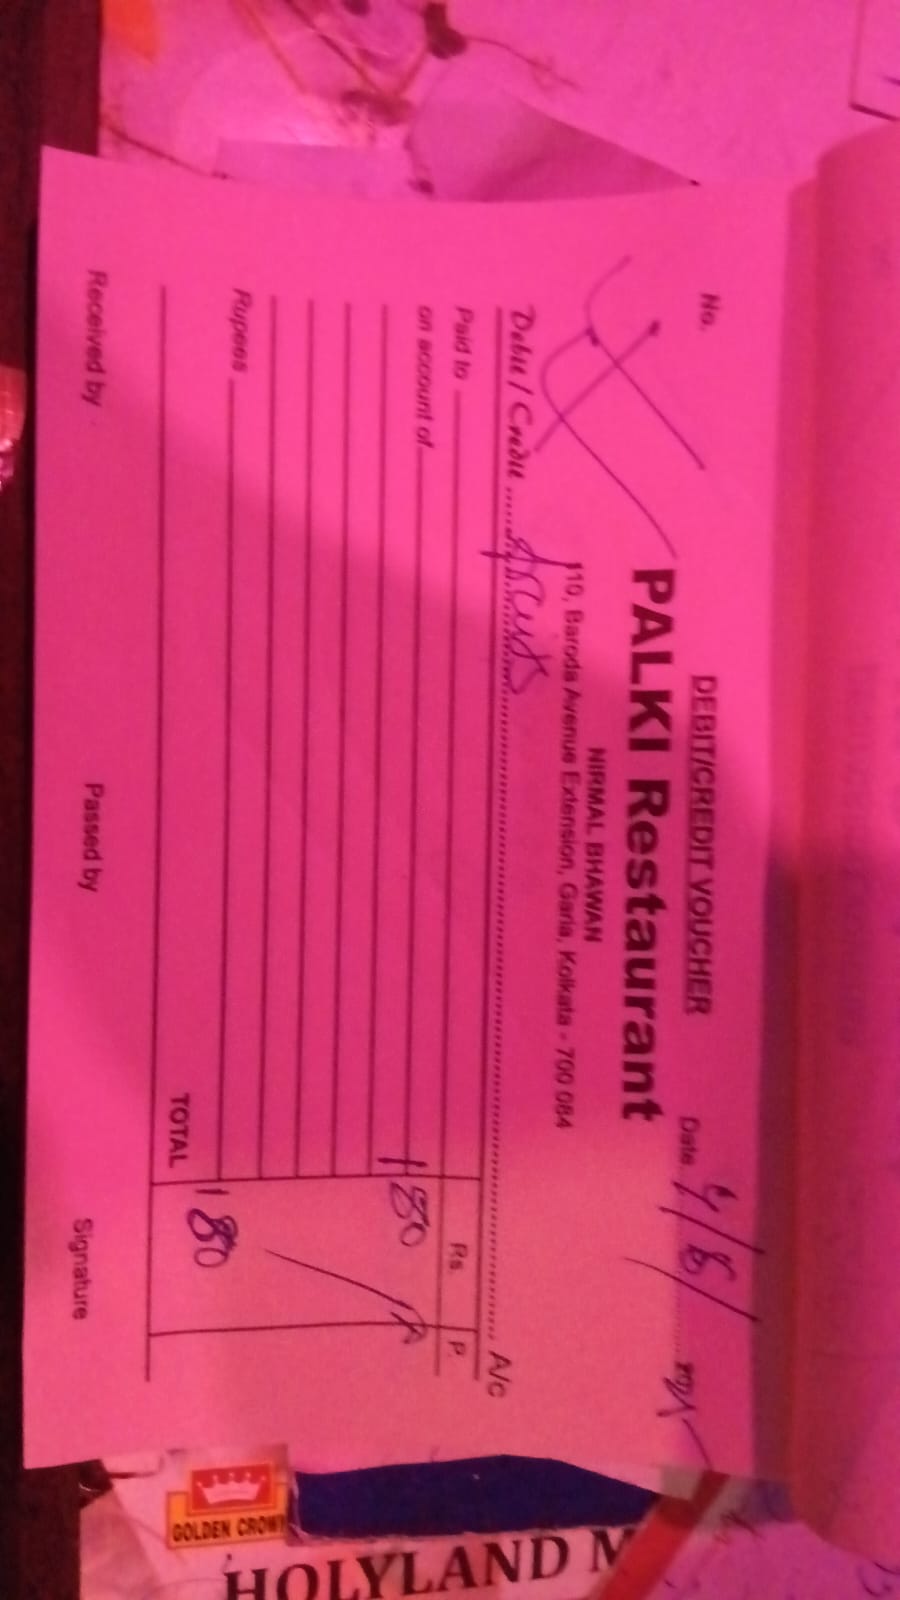 DEBIT/CREDIT VOUCHER
No.
Date 4/8/
PALKI Restaurant
NIRMAL BHAWAN
110, Baroda Avenue Extension, Garia, Kolkata - 700 084
Debit / Credit ........................ A/c
Paid to
Rs. P.
on account of
180
Rupees
TOTAL 180
Received by Passed by Signature
GOLDEN CROWN
HOLYLAND M